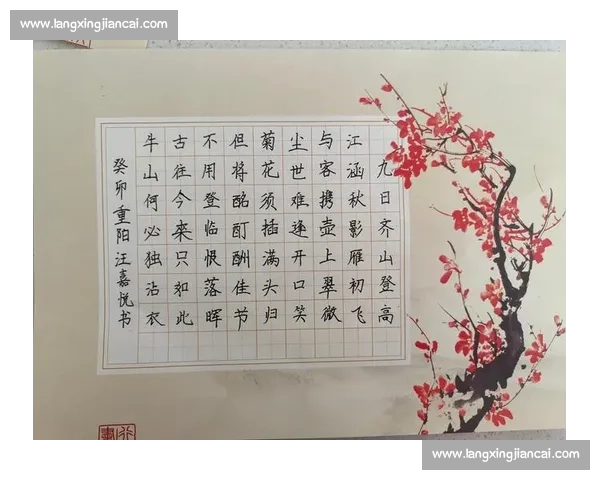 www.langxingjiancai.com
九日齐山登高
江涵秋影雁初飞
与客携壶上翠微
尘世难逢开口笑
菊花须插满头归
但将酩酊酬佳节
不用登临恨落晖
古往今来只如此
牛山何必独沾衣
癸卯重阳汪嘉悦书
www.langxingjiancai.com